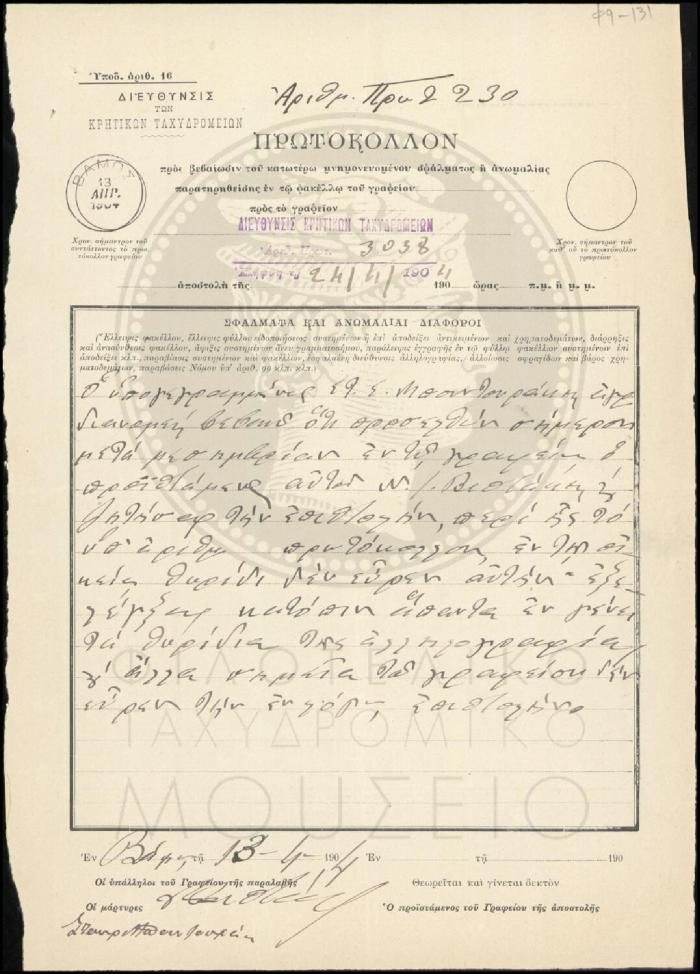 φ9-131
Ὑποδ. ἀριθ. 16
ΔΙΕΥΘΥΝΣΙΣ
ΤΩΝ
ΚΡΗΤΙΚΩΝ ΤΑΧΥΔΡΟΜΕΙΩΝ
Ἀριθμ. Πρω 2230
ΠΡΩΤΟΚΟΛΛΟΝ
πρὸς βεβαίωσιν τοῦ κατωτέρω μνημονευομένου σφάλματος ἢ ἀνωμαλίας
παρατηρηθείσης ἐν τῷ φακέλλῳ τοῦ γραφείου
πρὸς τὸ γραφεῖον
ΒΑΜΟΣ
13
ΑΠΡ.
1904
ΔΙΕΥΘΥΝΣΙΣ ΚΡΗΤΙΚΩΝ ΤΑΧΥΔΡΟΜΕΙΩΝ
Ἀριθ. Πρωτ. 3038
24/4/1904
Χρον. σήμαντρον τοῦ
συντάττοντος τὸ πρω
τόκολλον γραφείου
Χρον. σήμαντρον τοῦ
καθ' οὗ τὸ πρωτόκολλον
γραφείου
ἀποστολὴ τῆς 190 ὥρας π.μ. ἢ μ. μ.
ΣΦΑΛΜΑΤΑ ΚΑΙ ΑΝΩΜΑΛΙΑΙ ΔΙΑΦΟΡΟΙ
(Ἔλλειψις φακέλλου, ἔλλειψις φύλλου εἰδοποιήσεως συστημένων ἢ ἐπὶ ἀποδείξει ἀντικειμένων καὶ χρηματοδεμάτων, διάρρηξις
καὶ ἀποσύνθεσις φακέλλου, ἄφιξις συστημένων ἄνευ γραμματοσήμου, παράλειψις ἐγγραφῆς ἐν τῷ φύλλῳ φακέλλου συστημένων ἐπὶ
ἀποδείξει κλπ., παραβίασις συστημένων καὶ φακέλλου, ἐσφαλμένη διεύθυνσις ἀλληλογραφίας, ἀλλοίωσις σφραγίδων καὶ βάρος χρη-
ματοδεμάτων, παραβάσεις Νόμου ὑπ' ἀριθ. 99 κλπ. κλπ.)
Ὁ ὑπογεγραμμένος Στ. Σ. Μπουντουράκης ἀγρ
διανομεὺς βεβαιῶ ὅτι προσελθὼν σήμερον
μετὰ μεσημβρίαν ἐν τῷ γραφείῳ ὁ
προϊστάμενος αὐτοῦ
ζητήσας τὴν ἐπιστολήν, περὶ ἧς τὸ
ὑπ' ἀριθμ πρωτόκολλον, ἐν τῇ οἰ-
κείᾳ θυρίδι δὲν εὗρεν αὐτὴν ἐξε-
λέγξας κατόπιν ἅπαντα ἐν γένει
τὰ θυρίδια τῆς ἀλληλογραφίας
ἄλλα σημεῖα τοῦ γραφείου δὲν
εὗρεν τὴν ἐν λόγῳ ἐπιστολήν.
ΦΙΛΟΤΕΛΙΚΟ
ΤΑΧΥΔΡΟΜΙΚΟ
ΜΟΥΣΕΙΟ
Ἐν Βάμῳ τῇ 13-4-1904 Ἐν τῇ 190
Οἱ ὑπάλληλοι τοῦ Γραφείου τῆς παραλαβῆς Θεωρεῖται καὶ γίνεται δεκτὸν
Οἱ μάρτυρες Ὁ προϊστάμενος τοῦ Γραφείου τῆς ἀποστολῆς